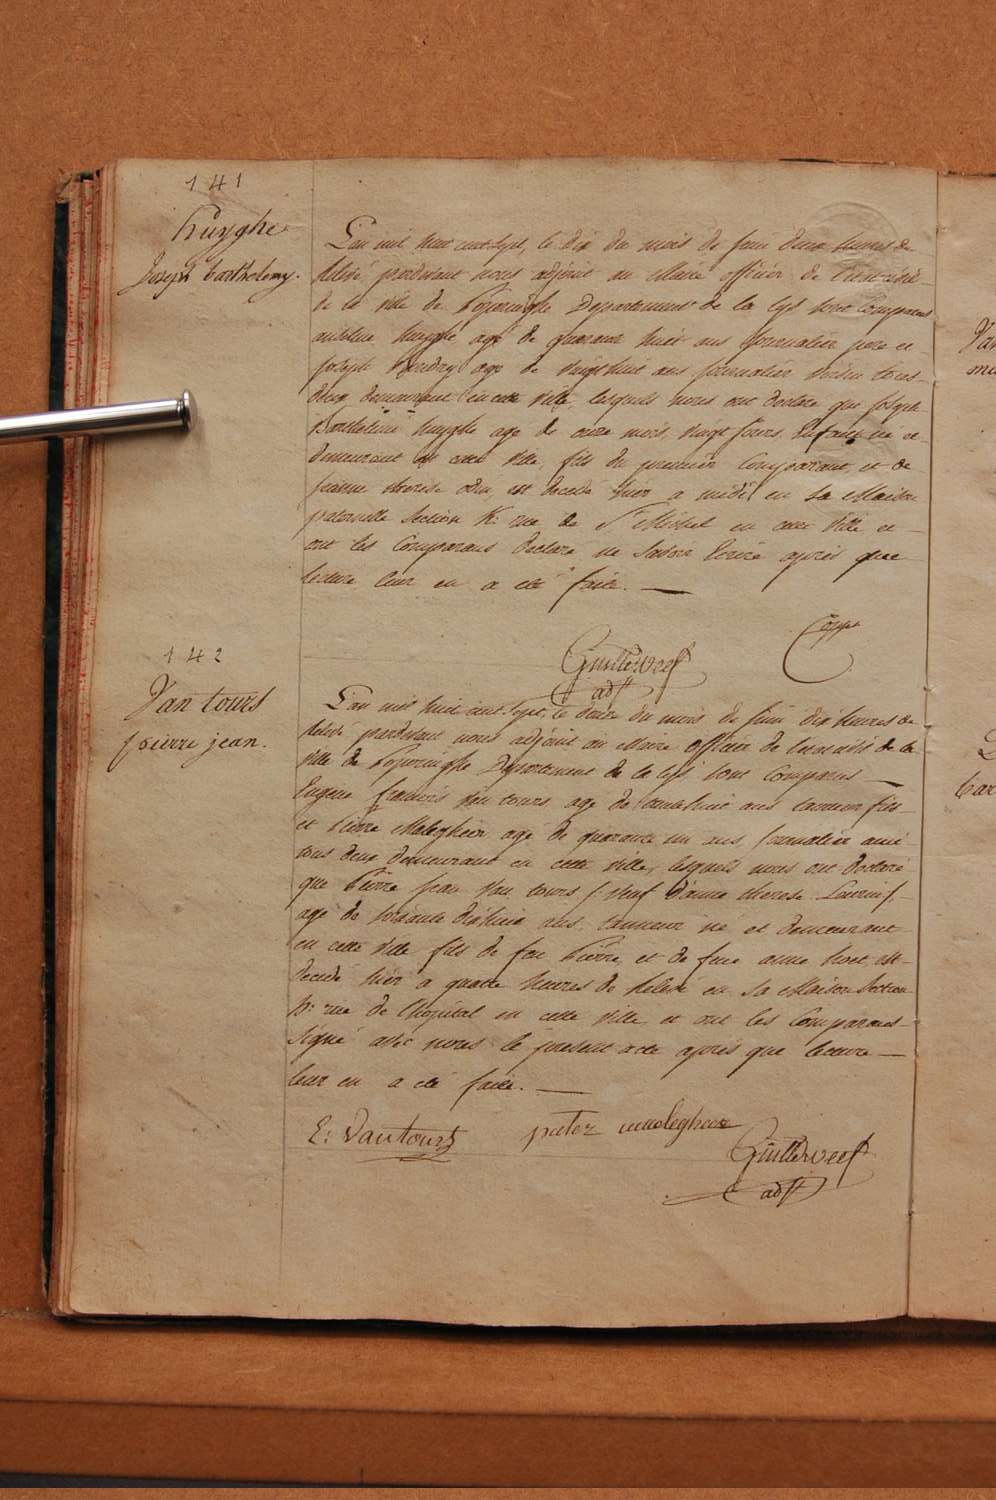 141
Huyghe
Joseph Barthelemy.
L'an mil huit cent sept, le dix du mois de Juin deux heures de
relevé pardevant nous adjoint au Maire officier de l'etat civil
de la ville de Poperinghe Departement de la Lys sont Comparus
huyghe agé de quarante huit ans Journalier pere et
Joseph agé de vingt huit ans Journalier voisin tous
deux demeurant en cette ville, lesquels nous ont declaré que Joseph
Barthelemi huyghe agé de onze mois, vingt Jours, Enfant né et
demeurant en cette ville, fils du premier Comparant, et de
Jeanne therese est decedé hier a midi en sa Maison
paternelle Section K: rue de St Michel en cette ville et
ont les Comparans declaré ne savoir Ecrire après que
lecture leur en a eté faite.
Guillerweef
adjt
142
Van tours
pierre jean.
L'an mil huit cent sept, le douze du mois de Juin dix heures de
relevé pardevant nous adjoint au Maire officier de l'etat civil de la
ville de Poperinghe Departement de la Lys sont Comparus
Eugene francois Van tours agé de trente huit ans tanneur fils
et Pierre Malegheir agé de quarante un ans, Journalier ami
tous deux demeurant en cette ville, lesquels nous ont declaré
que Pierre Jean Van tours /: veuf d'anne therese
agé de soixante dix huit ans, tanneur né et demeurant
en cette ville fils de feu Pierre, et de feue anne est
decedé hier a quatre heures de relevé en sa Maison Section
rue de l'hopital en cette ville et ont les Comparans
signé avec nous le present acte après que lecture
leur en a eté faite.
E: Vantours pieter malegheir
Guillerweef
adjt